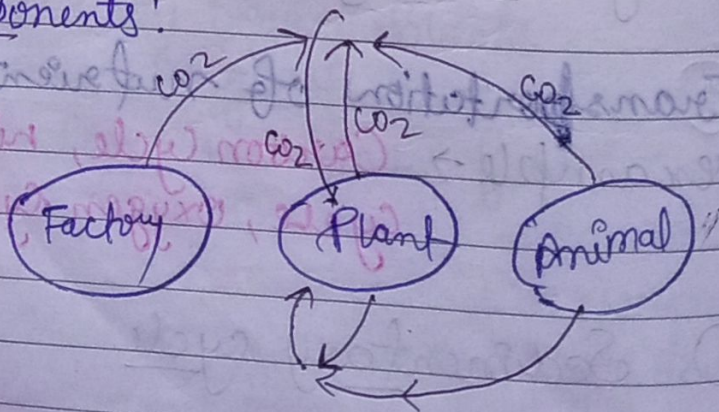 onents:
CO²
CO₂
CO₂
CO₂
Factory
Plant
Animal